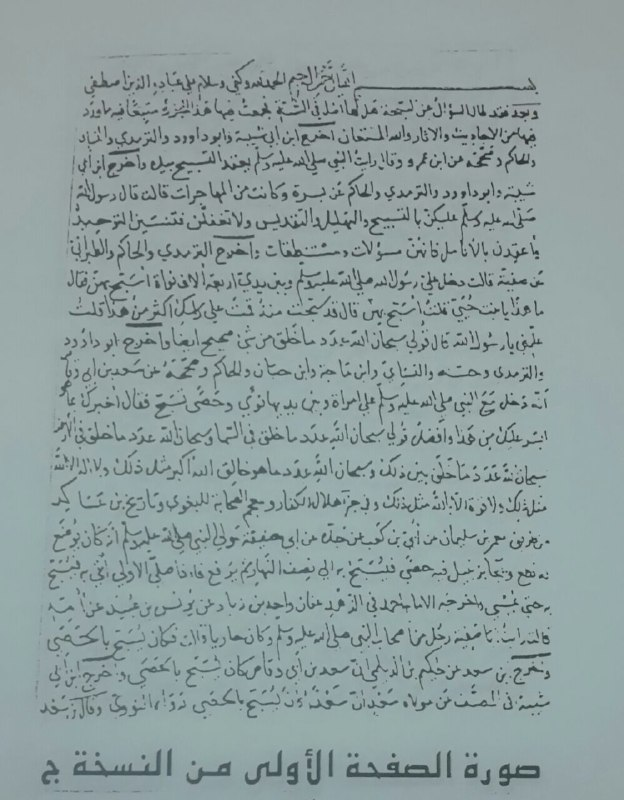 بسم الله الرحمن الرحيم الحمد لله وكفى وسلام على عباده الذين اصطفى
وبعد فقد طال السؤال عن السبحة هل لها اصل في السنة فجمعت فيها هذا الجزء متتبعا فيه ما ورد
فيها من الاحاديث والاثار والله المستعان اخرج ابن ابي شيبة وابو داوود والترمذي والنساي
والحاكم وصححه عن ابن عمرو قال رايت النبي صلى الله عليه وسلم يعقد التسبيح بيده واخرج ابن ابي
شيبة وابو داوود والترمذي والحاكم عن يسرة وكانت من المهاجرات قالت قال رسول الله
صلى الله عليه وسلم عليكن بالتسبيح والتهليل والتقديس ولا تغفلن فتنسين التوحيد
واعقدن بالانامل فانهن مسؤلات ومستنطقات واخرج الترمذي والحاكم والطبراني
عن صفية قالت دخل علي رسول الله صلى الله عليه وسلم وبين يدي اربعة الاف نواة اسبح بهن فقال
ما هذا يا بنت حيي قلت اسبح بهن قال قد سبحت منذ قمت على راسك اكثر من هذا قلت
علمني يا رسول الله قال قولي سبحان الله عدد ما خلق من شي صحيح ايضا واخرج ابو داوود
والترمذي وحسنه والنساي وابن ماجة وابن حبان والحاكم وصححه عن سعد بن ابي وقاص
انه دخل مع النبي صلى الله عليه وسلم على امراة وبين يديها نوى وحصى تسبح فقال اخبرك بما هو
ايسر عليك من هذا وافضل قولي سبحان الله عدد ما خلق في السما وسبحان الله عدد ما خلق في الارض
سبحان الله عدد ما خلق بين ذلك وسبحان الله عدد ما هو خالق الله اكبر مثل ذلك ولا اله الا الله
مثل ذلك ولا قوة الا بالله مثل ذلك وفي جزء هلال الحفار ومعجم الصحابة للبغوي وتاريخ بن عساكر
من طريق معمر بن سليمان عن ابي بن كعب عن جده عن ابي صفية مولى النبي صلى الله عليه وسلم انه كان يوضع
له نطع ويجا بزنبيل فيه حصى فيسبح به الى نصف النهار ثم يرفع فاذا صلى الاولى اتي به فيسبح
به حتى يمسي واخرجه الامام احمد في الزهد عفان واحد بن زياد عن يونس بن عبيد عن امه
قالت رايت ابا صفية رجل من اصحاب النبي صلى الله عليه وسلم وكان جارنا قالت فكان يسبح بالحصى
واخرج بن سعد عن حكيم بن الديلمي ان سعد بن ابي وقاص كان يسبح بالحصى واخرج ابن ابي
شيبة في المصنف عن مولاة سعد ان سعدا كان يسبح بالحصى
صورة الصفحة الأولى من النسخة ج